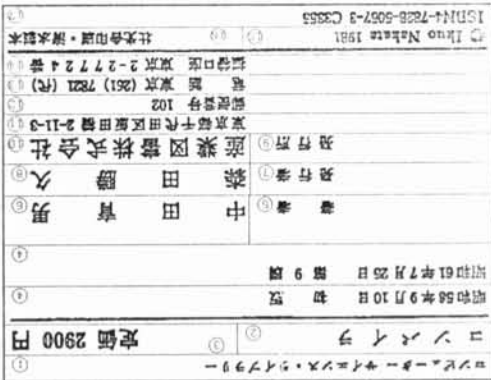 コンピューター・サイエンス・ライブラリー ①
コンパイラ ② ③ 定価 2900 円
昭和58年9月10日 初版 ④
昭和61年7月25日 第9刷 ④
著者 ⑤ 中田育男 ⑥
発行者 ⑦ 森田勝久 ⑧
発行所 ⑨ 産業図書株式会社 ⑩
東京都千代田区飯田橋 2-11-3 ⑪
郵便番号 102 ⑫
電話 東京 (261) 7821 (代) ⑬
振替口座 東京 2-27724 番 ⑭
© Ikuo Nakata 1981 壮光舎印刷・清水製本
ISBN4-7828-5057-3